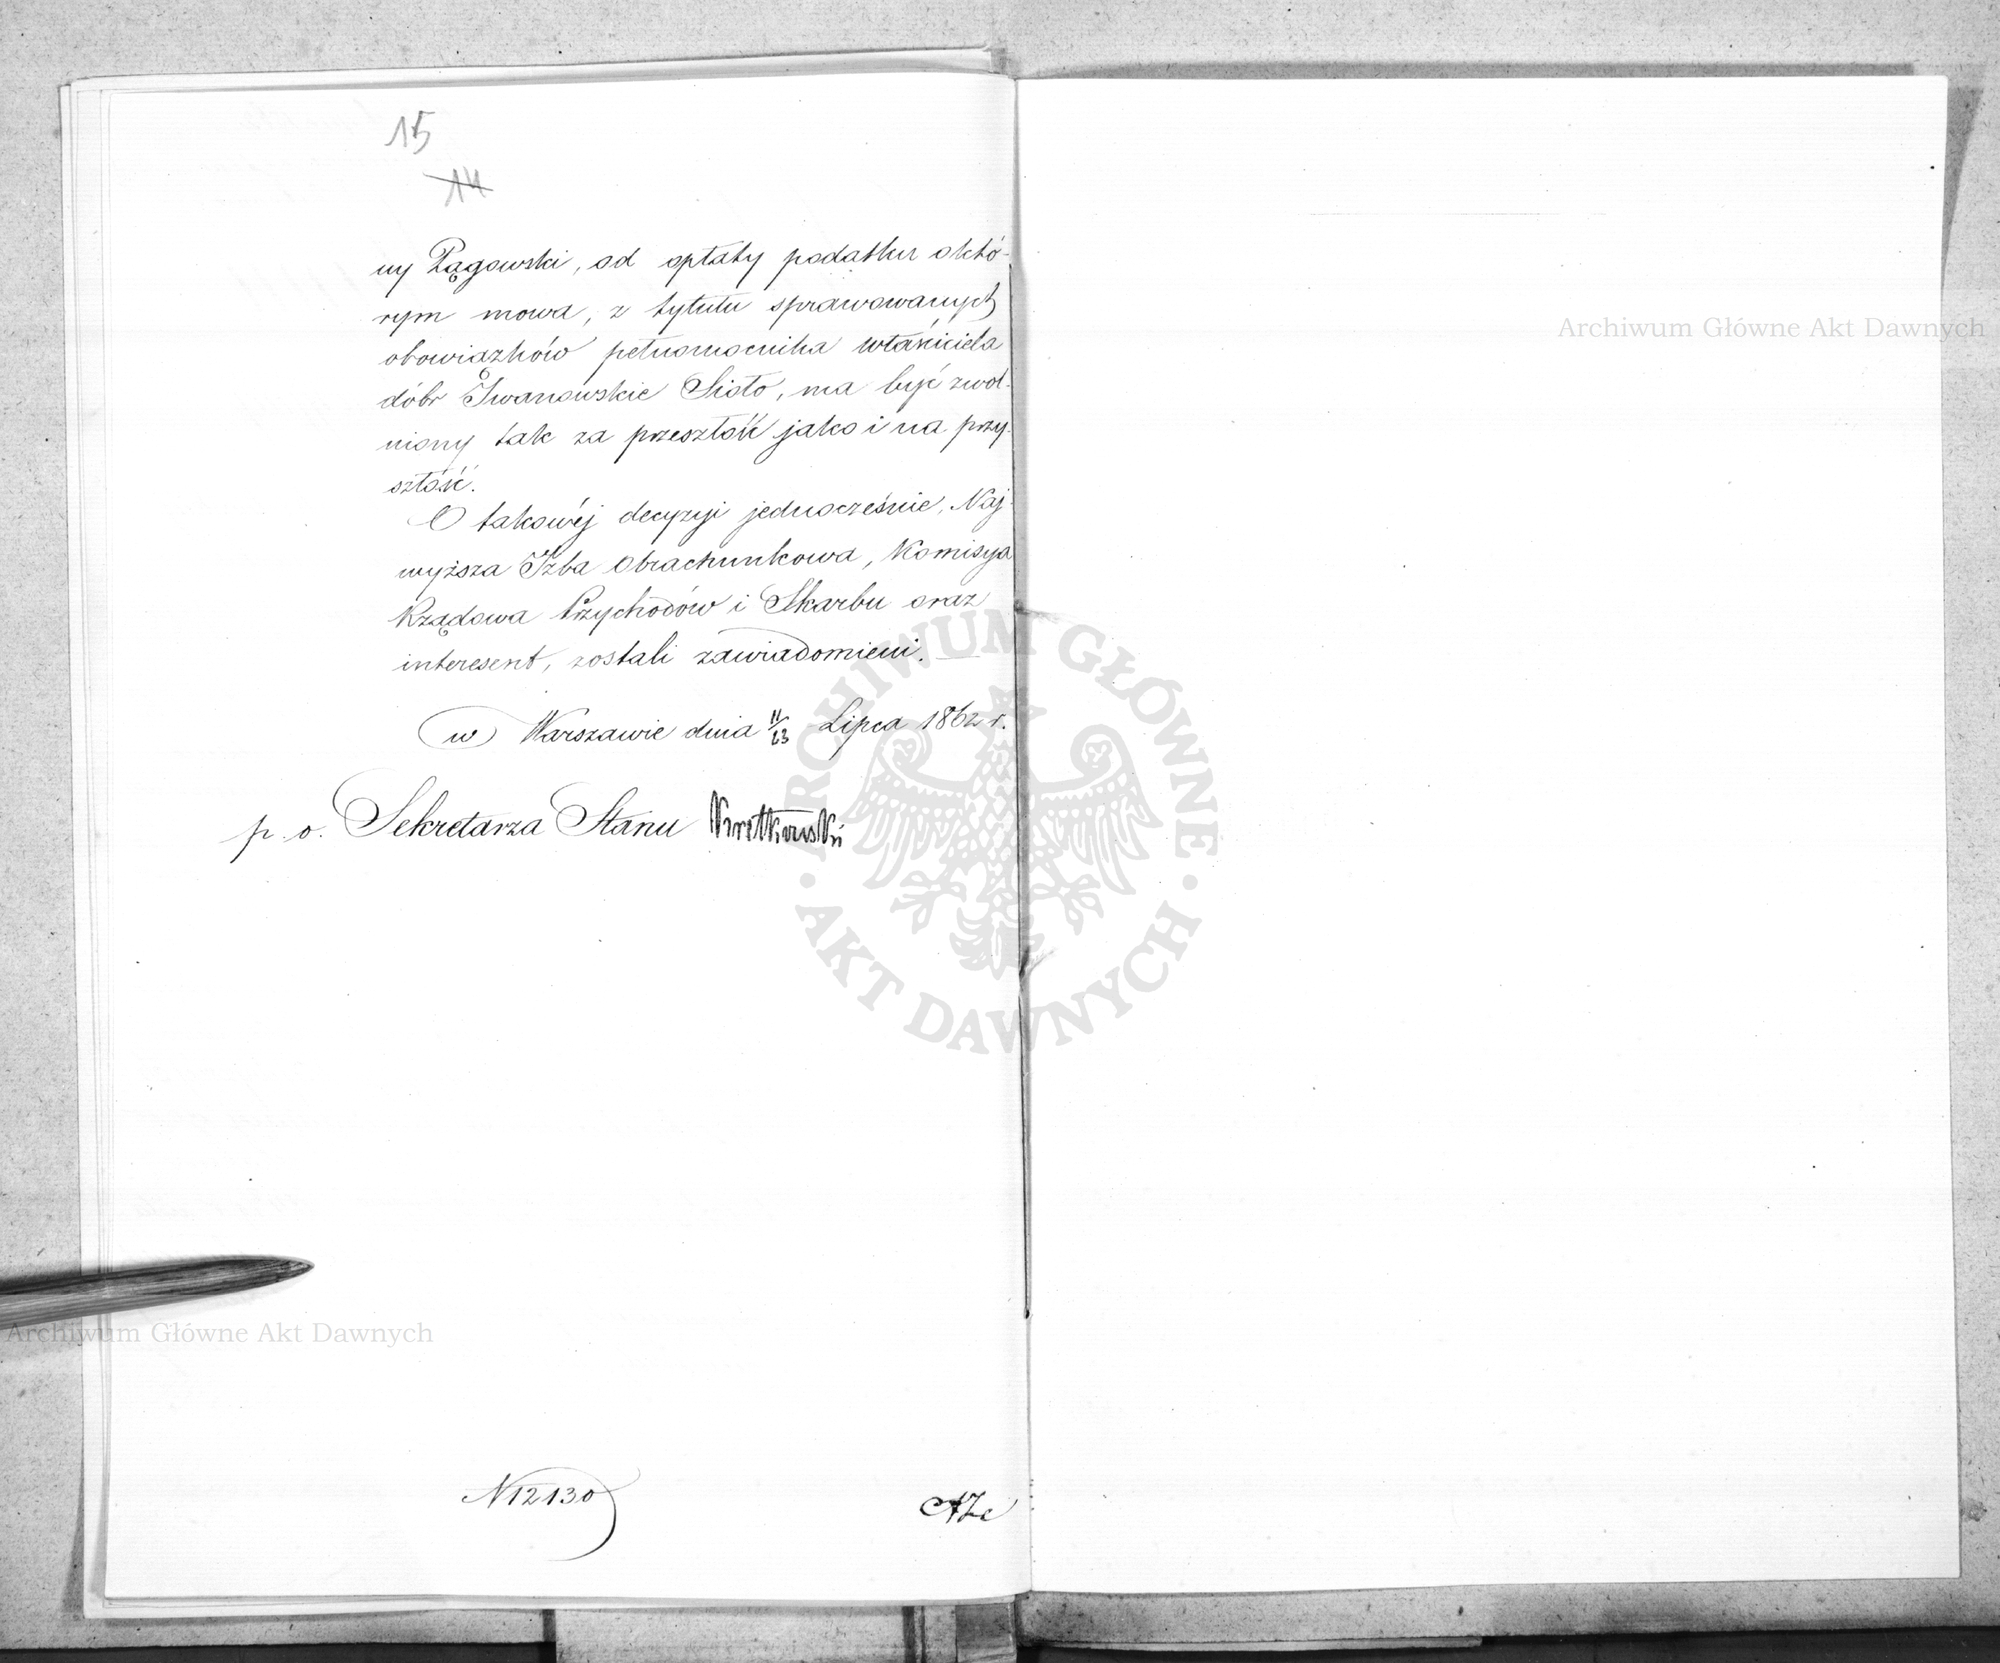 15
14
ny Zągowski, od opłaty podatku o któ-
rym mowa, z tytułu sprawowanych
obowiązków pełnomocnika właściciela
dóbr Iwanowskie Sioło, ma być zwol-
niony tak za przeszłość jako i na przy-
szłość.
O takowéj decyzyi jednocześnie, Naj-
wyższa Izba Obrachunkowa, Komisya
Rządowa Przychodów i Skarbu oraz
interesent, zostali zawiadomieni.
w Warszawie dnia 11/23 Lipca 1862 r.
p. o. Sekretarza Stanu Kretkowski
N 12130
Archiwum Główne Akt Dawnych
Archiwum Główne Akt Dawnych
ARCHIWUM GŁÓWNE
AKT DAWNYCH